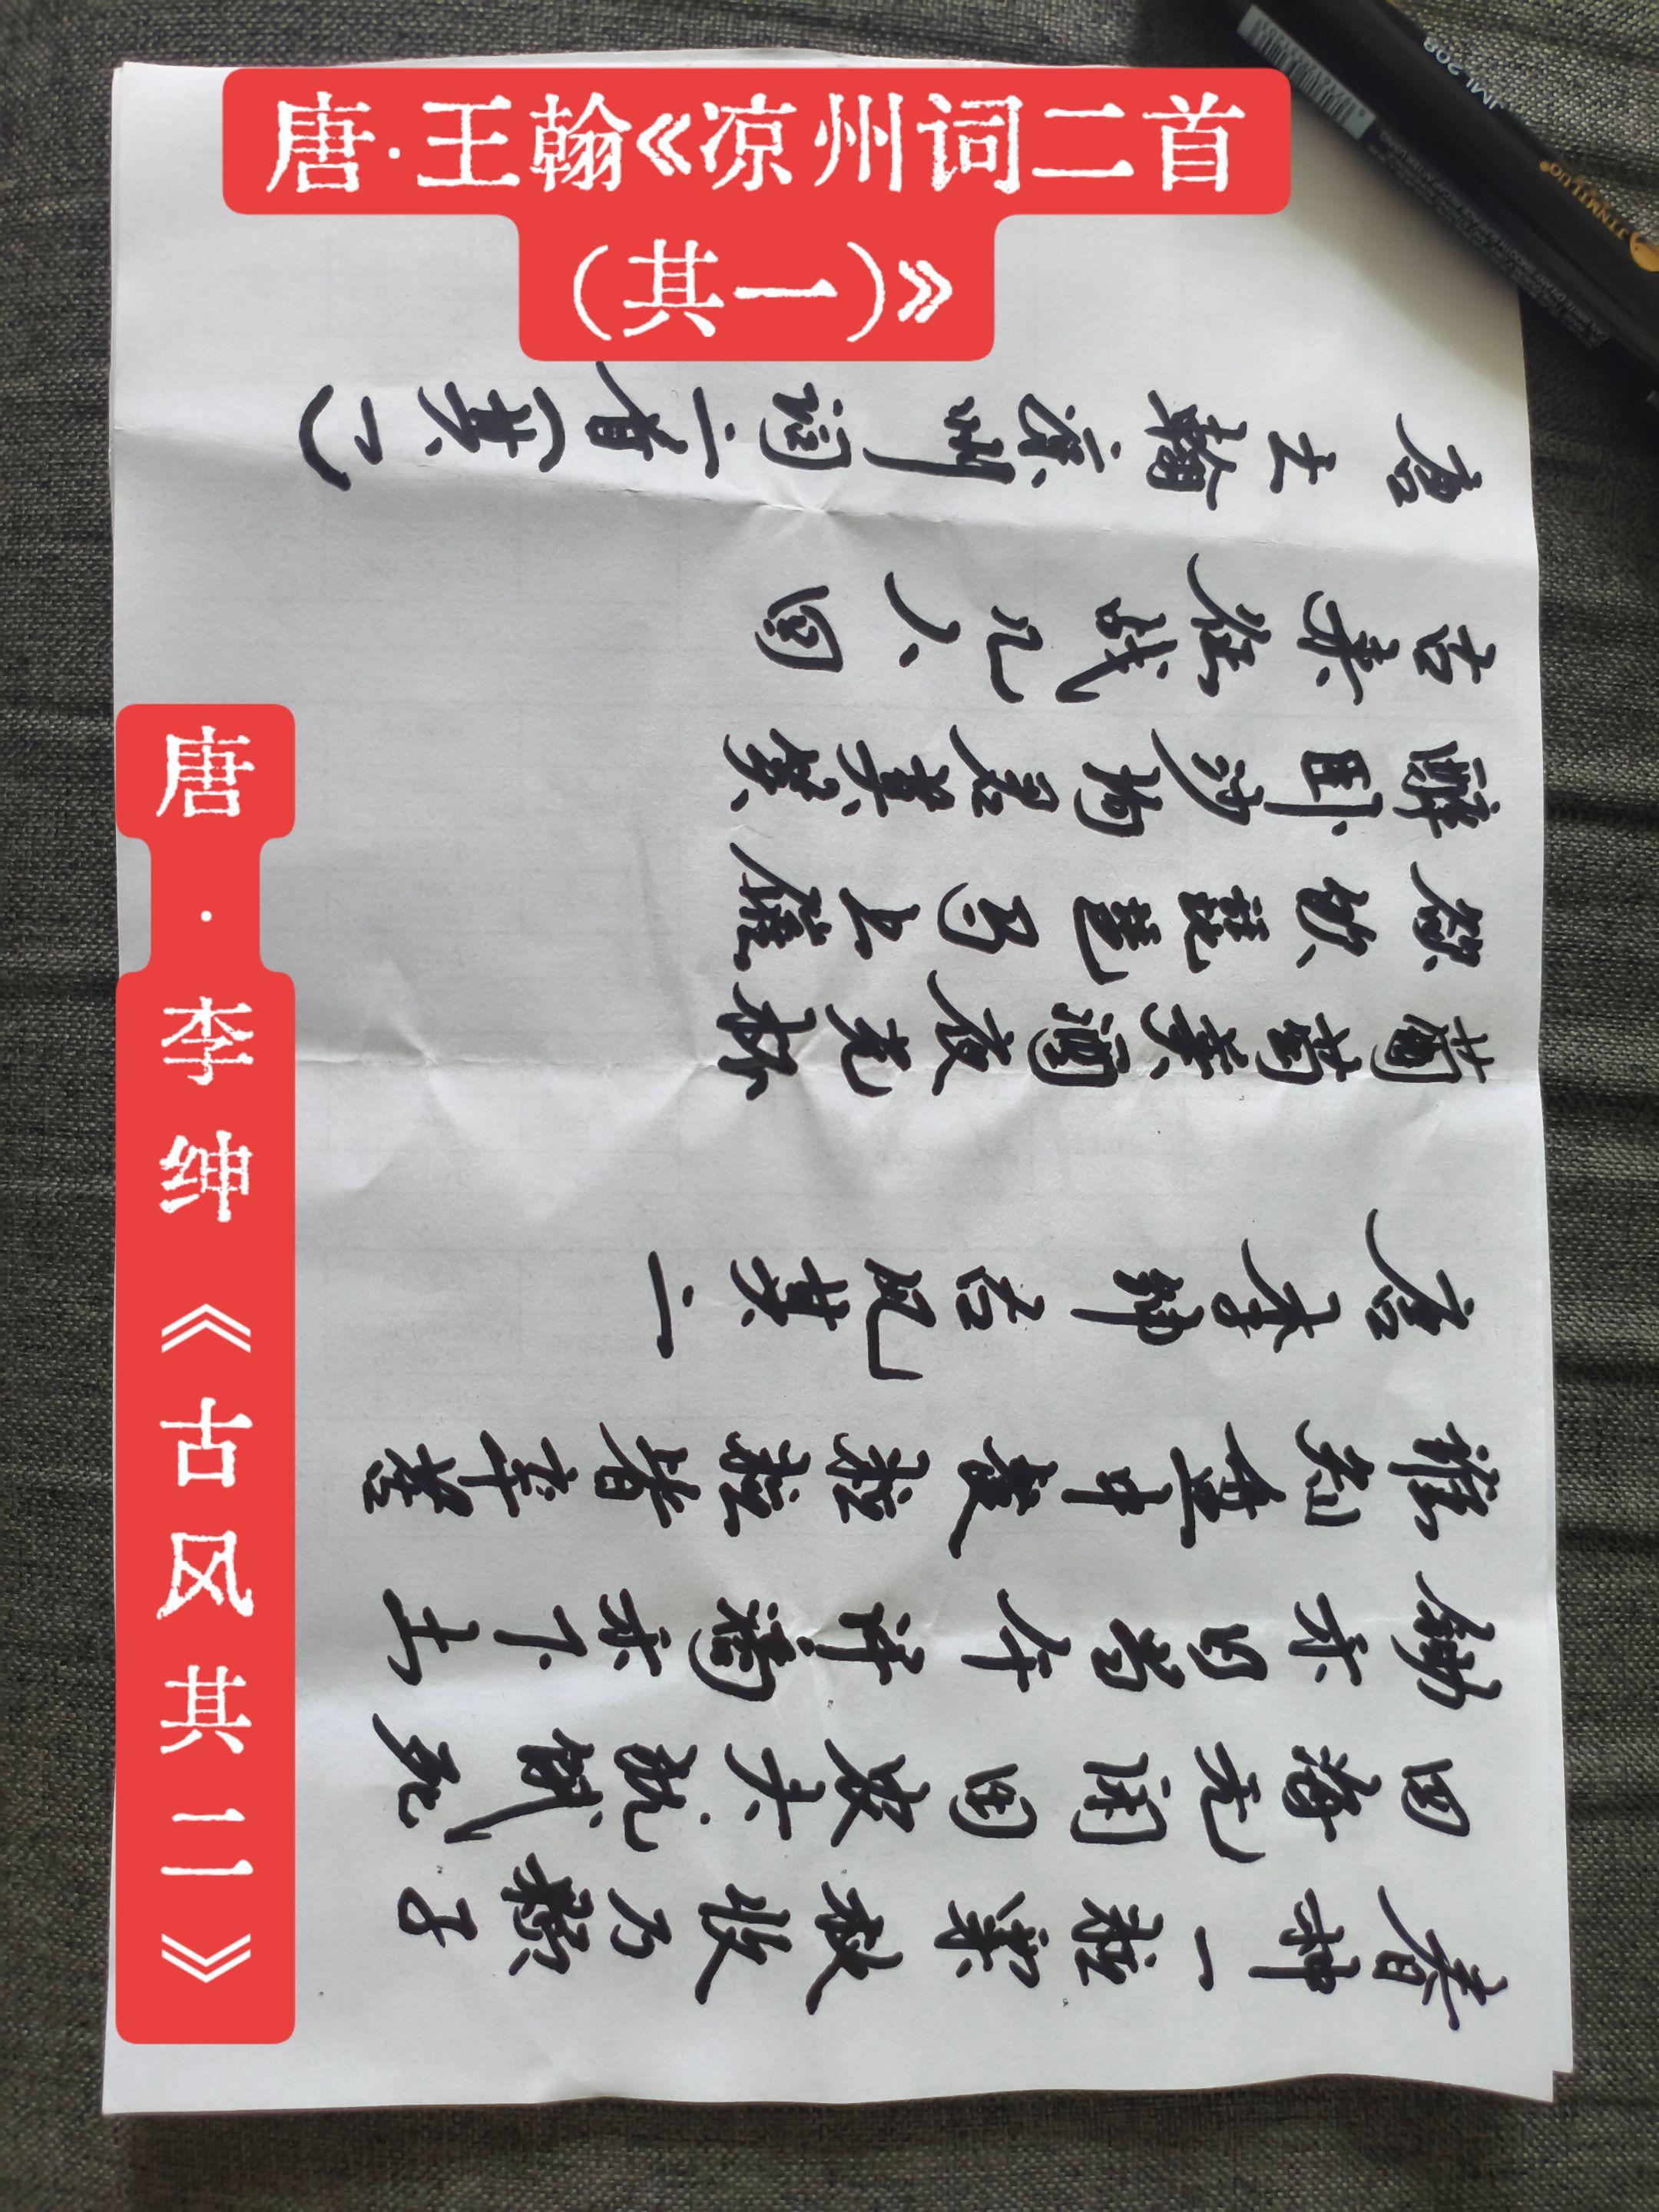 唐·王翰《凉州词二首
(其一)》
唐·李绅《古风其二》
春种一粒粟秋收万颗子
四海无闲田农夫犹饿死
锄禾日当午汗滴禾下土
谁知盘中餐粒粒皆辛苦
唐李绅古风其二
葡萄美酒夜光杯
欲饮琵琶马上催
醉卧沙场君莫笑
古来征战几人回
唐王翰凉州词二首(其一)
JML 208
JTNMTLUO®